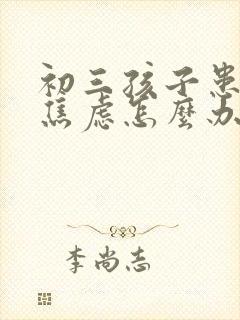 初三孩子患
焦虑怎麽办
李尚志